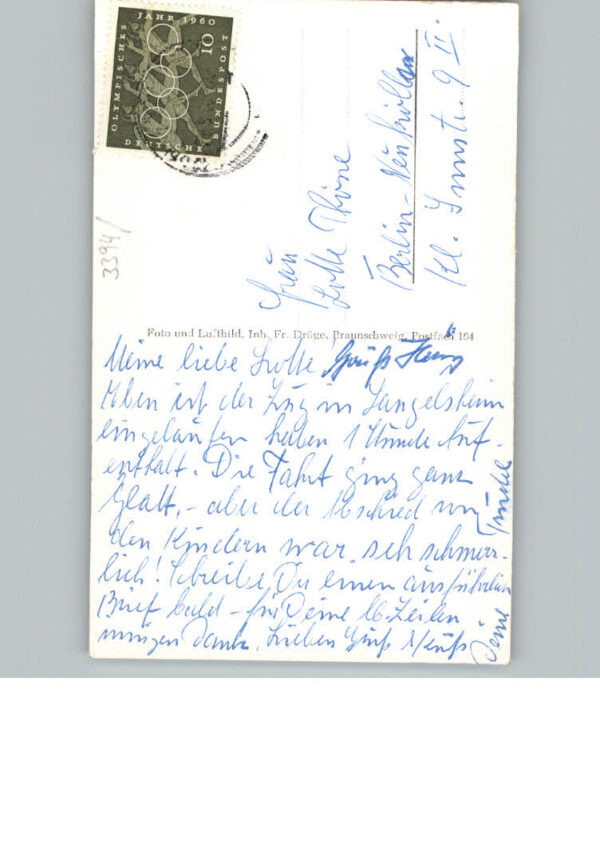 OLYMPISCHES
JAHR 1960
10
DEUTSCHE
BUNDESPOST
3394/
Frau
Lotte Thöne
Berlin-Neukölln
Kl. Innstr. 9 II.
Foto und Luftbild, Inh. Fr. Dröge, Braunschweig, Postfach 164
Meine liebe Lotte Gruß Hans
Eben ist der Zug in Langelsheim
eingelaufen haben 1 Stunde Auf-
enthalt. Die Fahrt ging ganz
glatt, - aber der Abschied von
den Kindern war seh schmerz-
lich! Schreibe Du einen ausführlichen
Brief bald - für Deine lb. Zeilen
innigen Dank. Lieben Gruß
Deine Trudel